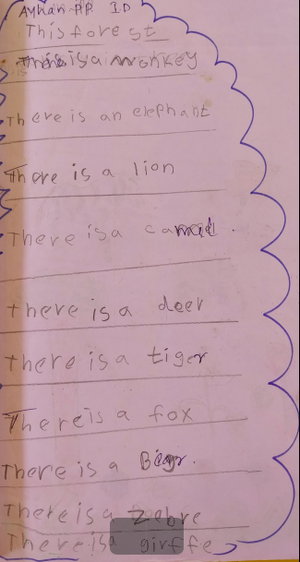 Ayhan-PP ID
This forest
This is a monkey
There is an elephant
There is a lion
There is a camel.
There is a deer
There is a tiger
There is a fox
There is a Bear.
There is a Zebre
There is a girffe